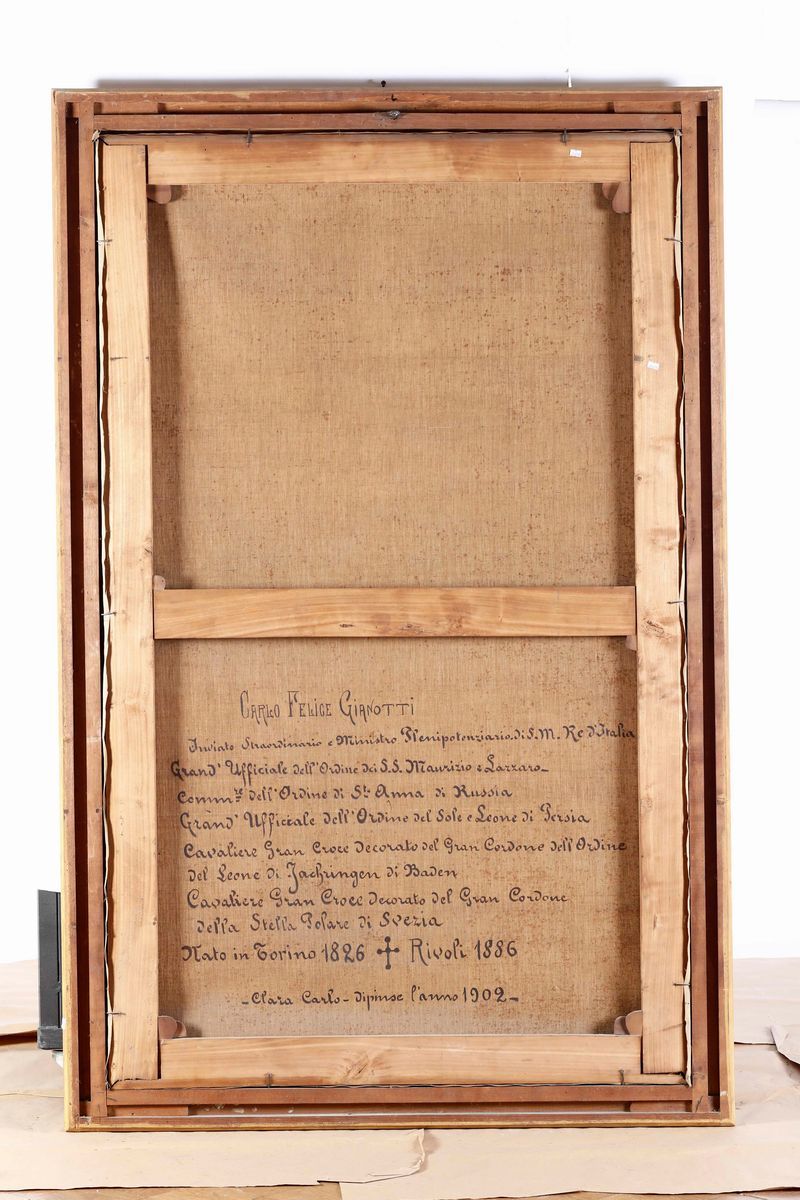 Carlo Felice Gianotti
Inviato Straordinario e Ministro Plenipotenziario di S.M. Re d'Italia
Grand' Ufficiale dell'Ordine dei S.S. Maurizio e Lazzaro-
Comm.re dell'Ordine di St. Anna di Russia
Grand' Ufficiale dell'Ordine del Sole e Leone di Persia
Cavaliere Gran Croce decorato del Gran Cordone dell'Ordine
del Leone di Jachringen di Baden
Cavaliere Gran Croce decorato del Gran Cordone
della Stella Polare di Svezia
Nato in Torino 1826 ✢ Rivoli 1886
- Clara Carlo - dipinse l'anno 1902 -